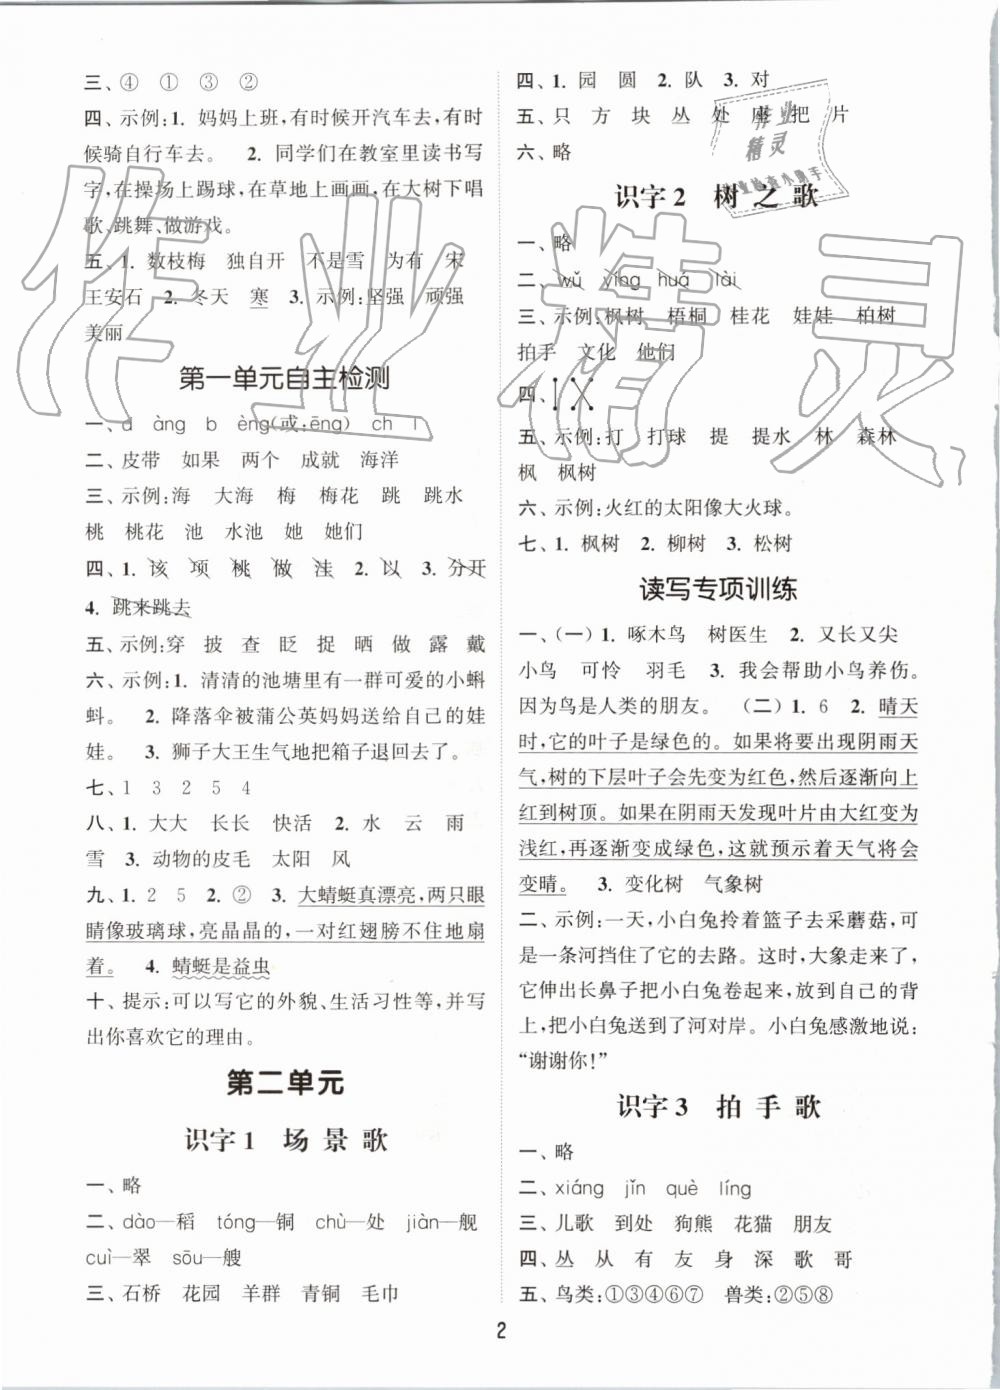 三、④ ① ③ ②
四、示例:1. 妈妈上班,有时候开汽车去,有时
候骑自行车去。 2. 同学们在教室里读书写
字,在操场上踢球,在草地上画画,在大树下唱
歌、跳舞、做游戏。
五、1. 数枝梅 独自开 不是雪 为有 宋
王安石 2. 冬天 寒 3. 示例:坚强 顽强
美丽
第一单元自主检测
一、d àng b èng(或:ēng) ch l
二、皮带 如果 两个 成就 海洋
三、示例:海 大海 梅 梅花 跳 跳水
桃 桃花 池 水池 她 她们
四、1. 该 项 桃 做 洼 2. 以 3. 分开
4. 跳来跳去
五、示例:穿 披 查 眨 捉 晒 做 露 戴
六、示例:1. 清清的池塘里有一群可爱的小蝌
蚪。 2. 降落伞被蒲公英妈妈送给自己的娃
娃。 3. 狮子大王生气地把箱子退回去了。
七、1 3 2 5 4
八、1. 大大 长长 快活 2. 水 云 雨
雪 3. 动物的皮毛 太阳 风
九、1. 1 2 5 2. ② 3. 大蜻蜓真漂亮,两只眼
睛像玻璃球,亮晶晶的,一对红翅膀不住地扇
着。 4. 蜻蜓是益虫
十、提示:可以写它的外貌、生活习性等,并写
出你喜欢它的理由。
第二单元
识字1 场景歌
一、略
二、dào—稻 tóng—铜 chù—处 jiàn—舰
cuì—翠 sōu—艘
三、石桥 花园 羊群 青铜 毛巾
四、1. 园 圆 2. 队 3. 对
五、只 方 块 丛 处 座 把 片
六、略
识字2 树之歌
一、略
二、wǔ yíng huá lài
三、示例:枫树 梧桐 桂花 娃娃 柏树
拍手 文化 他们
四、
五、示例:打 打球 提 提水 林 森林
枫 枫树
六、示例:火红的太阳像大火球。
七、1. 枫树 2. 柳树 3. 松树
读写专项训练
一、(一)1. 啄木鸟 树医生 2. 又长又尖
小鸟 可怜 羽毛 3. 我会帮助小鸟养伤。
因为鸟是人类的朋友。 (二)1. 6 2. 晴天
时,它的叶子是绿色的。如果将要出现阴雨天
气,树的下层叶子会先变为红色,然后逐渐向上
红到树顶。如果在阴雨天发现叶片由大红变为
浅红,再逐渐变成绿色,这就预示着天气将会
变晴。 3. 变化树 气象树
二、示例:一天,小白兔拎着篮子去采蘑菇,可
是一条河挡住了它的去路。这时,大象走来了,
它伸出长鼻子把小白兔卷起来,放到自己的背
上,把小白兔送到了河对岸。小白兔感激地说:
“谢谢你!”
识字3 拍手歌
一、略
二、xiáng jǐn què líng
三、儿歌 到处 狗熊 花猫 朋友
四、丛 从 有 友 身 深 歌 哥
五、鸟类:①③④⑥⑦ 兽类:②⑤⑧
2
作业精灵
作业
精灵
作业检查小助手